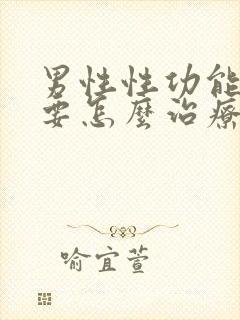 男性性功能
要怎麼治療
喻宜萱